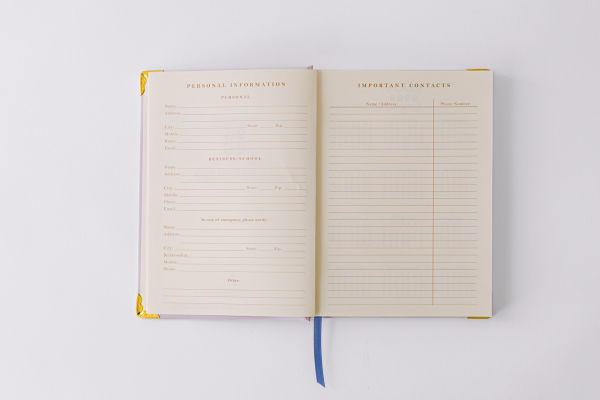 PERSONAL INFORMATION
PERSONAL
Name
Address
City State Zip
Mobile
Home
Email
BUSINESS/SCHOOL
Name
Address
City State Zip
Mobile
Phone
Email
In case of emergency, please notify:
Name
Address
City State Zip
Relationship
Mobile
Home
Other
IMPORTANT CONTACTS
Name / Address Phone Number